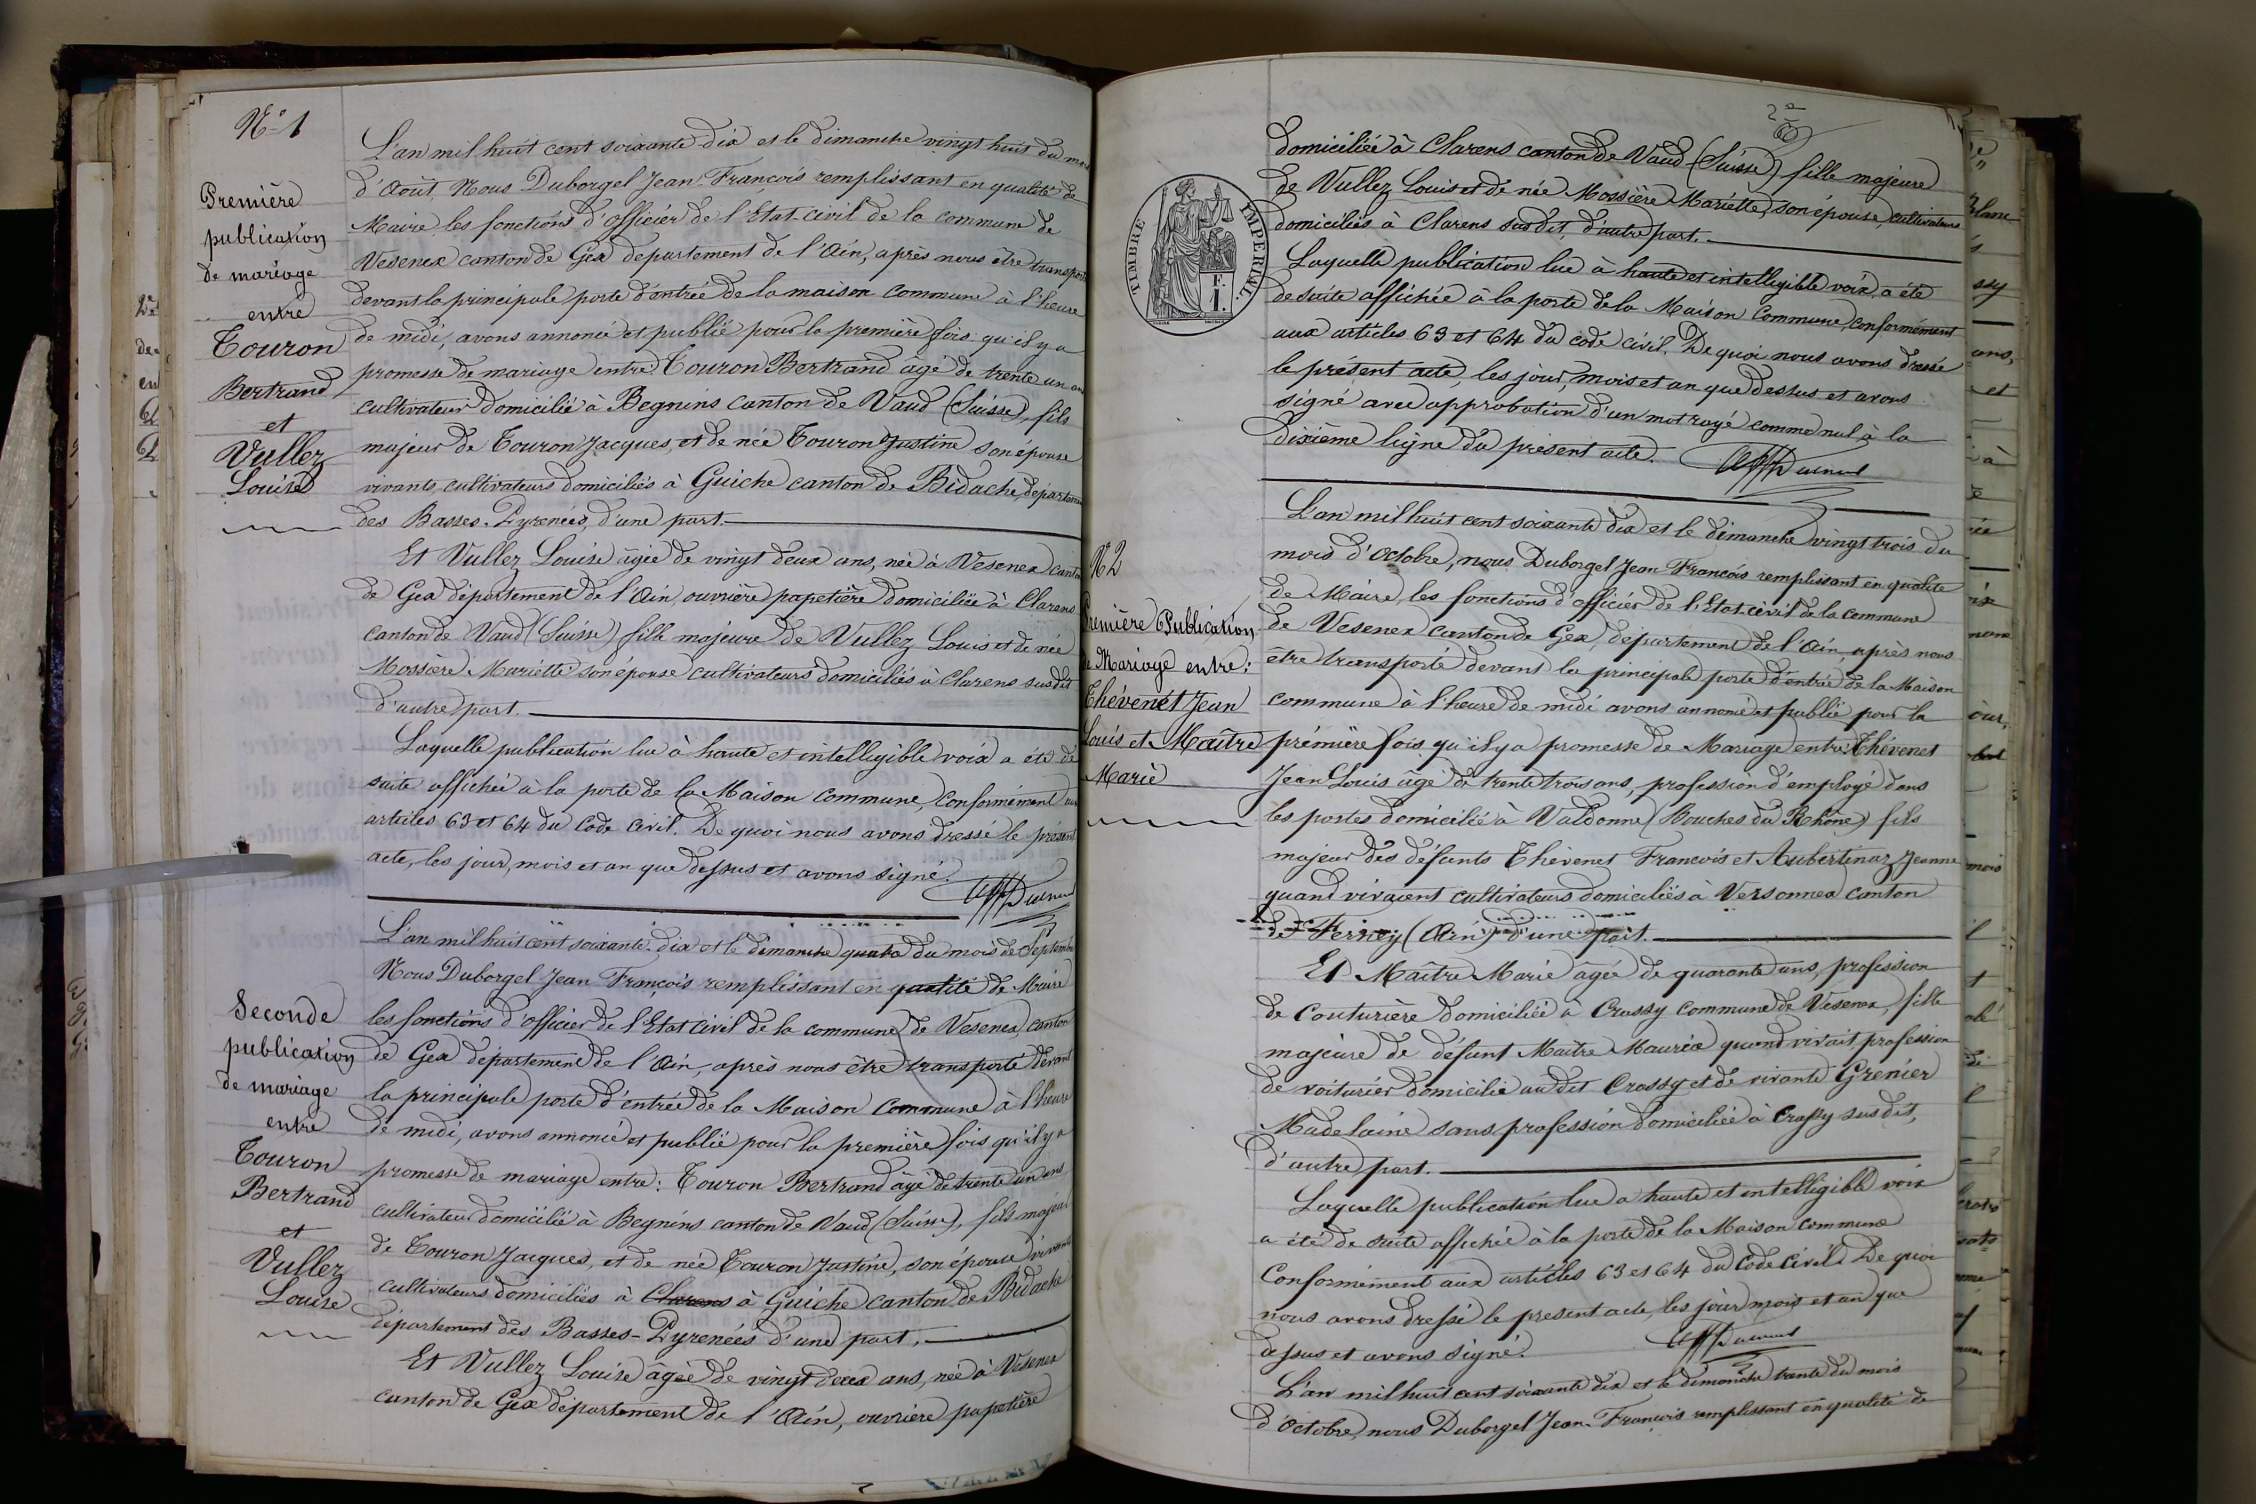 N° 1
Première
publication
de mariage
entre
Touron
Bertrand
et
Vullez
Louise
L'an mil huit cent soixante-dix et le dimanche vingt huit du mois
d'Août, Nous Duborgel Jean-François remplissant en qualité de
Maire les fonctions d'officier de l'Etat-civil de la commune de
Vesenex canton de Gex département de l'Ain, après nous être transporté
devant la principale porte d'entrée de la maison commune à l'heure
de midi, avons annoncé et publié pour la première fois qu'il y a
promesse de mariage entre Touron Bertrand âgé de trente un ans
cultivateur domicilié à Begnins canton de Vaud (Suisse), fils
majeur de Touron Jacques, et de née Touron Justine son épouse
vivants, cultivateurs domiciliés à Guiche canton de Bidache, départem
des Basses-Pyrenées, d'une part.
Et Vullez Louise âgée de vingt deux ans, née à Vesenex canton
de Gex département de l'Ain, ouvrière papetière domiciliée à Clarens
canton de Vaud (Suisse) fille majeure de Vullez Louis et de née
Mossière Mariette son épouse cultivateurs domiciliés à Clarens susdit
d'autre part.
Laquelle publication lue à haute et intelligible voix a été de
suite affichée à la porte de la Maison commune, conformément aux
articles 63 et 64 du Code civil. De quoi nous avons dressé le présent
acte, les jour, mois et an que dessus et avons signé.
Seconde
publication
de mariage
entre
Touron
Bertrand
et
Vullez
Louise
L'an mil huit cent soixante-dix et le dimanche quatre du mois de Septembre
Nous Duborgel Jean François remplissant en qualité de Maire
les fonctions d'officier de l'Etat civil de la commune de Vesenex, canton
de Gex département de l'Ain, après nous être transporté devant
la principale porte d'entrée de la Maison Commune à l'heure
de midi, avons annoncé et publié pour la première fois qu'il y a
promesse de mariage entre: Touron Bertrand âgé de trente un ans
cultivateur domicilié à Begnins canton de Vaud (Suisse), fils majeur
de Touron Jacques, et de née Touron Justine, son épouse vivants
cultivateurs domiciliés à Clarens à Guiche canton de Bidache
département des Basses-Pyrenées d'une part.
Et Vullez Louise âgée de vingt deux ans, née à Vesenex
canton de Gex département de l'Ain, ouvrière papetière
2e
TIMBRE IMPERIAL
F. I.
domiciliée à Clarens canton de Vaud (Suisse) fille majeure
de Vullez Louis et de née Mossière Mariette, son épouse, cultivateurs
domiciliés à Clarens susdit, d'autre part.
Laquelle publication lue à haute et intelligible voix, a été
de suite affichée à la porte de la Maison Commune, conformément
aux articles 63 et 64 du code civil. De quoi nous avons dressé
le présent acte, les jour, mois et an que dessus et avons
signé avec approbation d'un mot rayé comme nul à la
dixième ligne du présent acte.
N° 2
Première Publication
de Mariage entre:
Thévenet Jean
Louis et Maître
Marie
L'an mil huit cent soixante dix et le dimanche vingt trois du
mois d'Octobre, nous Duborgel Jean-François remplissant en qualité
de Maire, les fonctions d'officier de l'Etat-civil de la commune
de Vesenex canton de Gex, département de l'Ain, après nous
être transporté devant la principale porte d'entrée de la Maison
commune à l'heure de midi avons annoncé et publié pour la
première fois qu'il y a promesse de Mariage entre: Thévenet
Jean Louis âgé de trente trois ans, profession d'employé dans
les postes domicilié à Valdonne (Bouches du Rhône) fils
majeur des défunts Thévenet François et Aubertinaz Jeanne
quand vivaient cultivateurs domiciliés à Versonnex canton
de Ferney (Ain) d'une part.
Et Maître Marie âgée de quarante ans, profession
de couturière domiciliée à Crassy commune de Vesenex, fille
majeure de défunt Maître Maurice quand vivait, profession
de voiturier domicilié au dit Crassy et de vivante Grenier
Madelaine sans profession domiciliée à Crassy susdit,
d'autre part.
Laquelle publication lue a haute et intelligible voix
a été de suite affichée à la porte de la Maison commune
Conformément aux articles 63 et 64 du Code civil. De quoi
nous avons dressé le présent acte, les jour mois et an que
dessus et avons signé.
L'an mil huit cent soixante dix et le dimanche trente du mois
d'Octobre, nous Duborgel Jean-François remplissant en qualité de